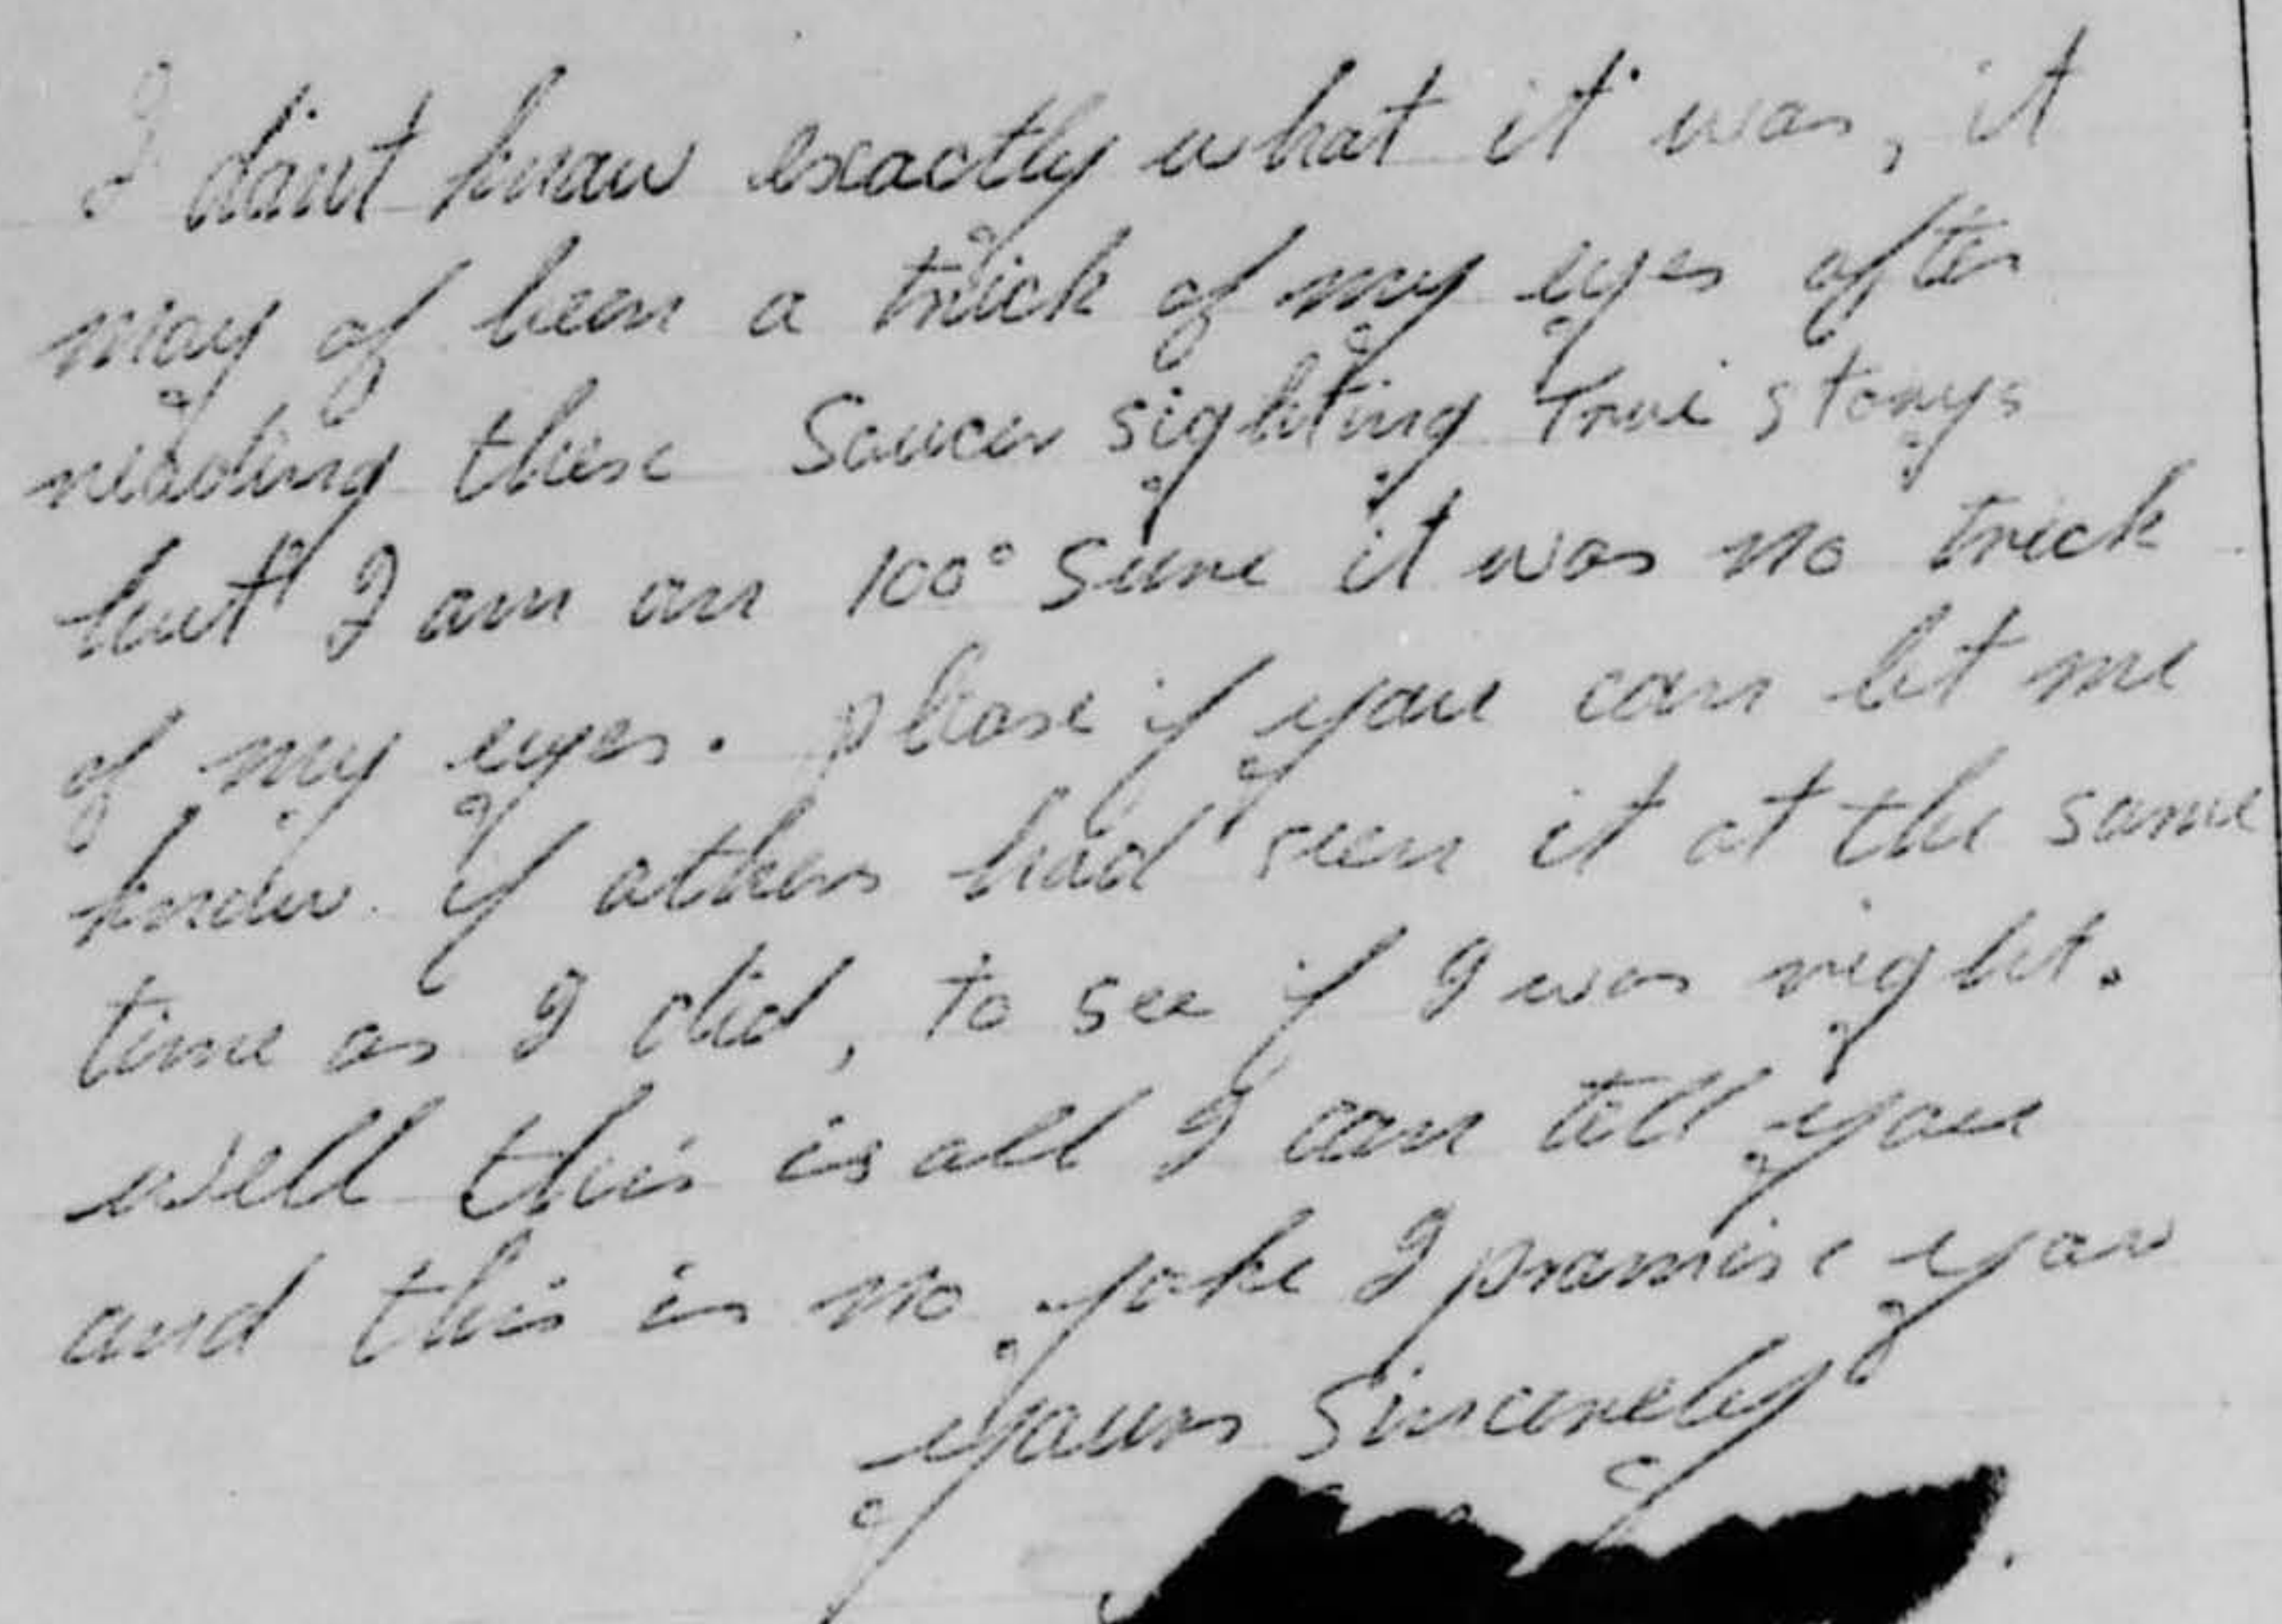 I don't know exactly what it was, it
may of been a trick of my eyes after
reading these Saucer sighting True storys
but I am an 100° Sure it was no trick
of my eyes. please if you can let me
know if others had seen it at the same
time as I did, to see if I was right.
well this is all I can tell you
and this is no joke I promise you
yours Sincerely